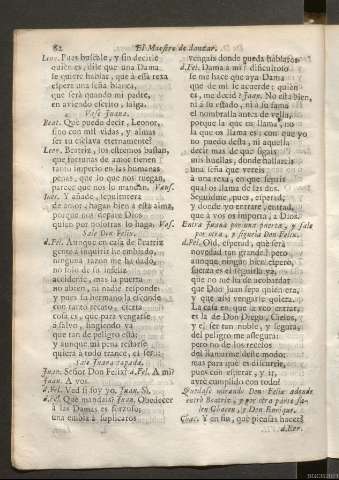 82 El Maestro de danzar.
Leon. Pues buscale, y sin decirle
quien es, dile que una Dama
le quiere hablar, que à essa rexa
espere una seña blanca,
que será quando mi padre,
en aviendo escrito, salga.
Vase Juana.
Beat. Què puedo decir, Leonor,
sino con mil vidas, y almas
ser tu esclava eternamente?
Leon. Beatriz, los efectos bastan,
que fortunas de amor tienen
tanto imperio en las humanas
penas, que lo que nos ruegan,
parece que nos lo mandan. Vans.
Inès. Y añade, si
de amor, hagan bien à esta alma,
porque nos depare Dios
quien por nosotras lo haga. Vas.
Sale Don Felix.
d.Fel. Aunque en casa de Beatriz
gente à inquirir he embiado,
ninguna razon me ha dado,
no solo de su infeliz
accidente, mas la puerta
no abren, ni nadie responde;
y pues su hermano la esconde
con tanto recato, cierta
cosa es, que para vengarse
à salvo, fingiendo và
que tan de peligro està;
y aunque mi pena recharse
quiera à todo trance, es
Sale Juana tapada.
Juan. Señor Don Felix? d.Fel. A mi?
Juan. A vos.
d.Fel. Ved si soy yo. Juan. Si.
d.Fel. Què mandais? Juan. Obedecer
à las Damas es forzoso;
una embia à suplicaros
vengais donde pueda hablaros.
d.Fel. Dama à mi? dificultoso
se me hace que aya Dama
que de mi se acuerde: quien
es, me decid? Juan. No està bien,
ni à su estado, ni à su fama
el nombralla antes de vella,
porque la que os llama, no
la que os llama es: con que yo
no puedo desta, ni aquella
decir mas de que sigais
mis huellas, donde hallareis
una seña que vereis
à una rexa, en que sepais
qual os llama de las dos.
Seguidme, pues, esperad;
y donde yo entràre, entrad,
que à vos os importa, à Dios.
Entra Juana por una puerta, y sale
por otra, y siguela Don Felix.
d.Fel. Oid, esperad, què serà
novedad tan grande? pero
aunque ningun bien espero,
fuerza es el seguilla ya,
que no me he de acobardar
que Don Juan sepa quien era,
y que assi vengarse quiera.
La casa en que se vèo entrar,
es la de Don Diego, Cielos,
y el ser tan noble, y segura
del peligro me assegura;
pero no de los rezelos
del llamarme deste modo;
mas para què es discurrir,
pues con esperar, y ir,
avrè cumplido con todo?
Quedase mirando Don Felix adonde
entrò Beatriz, y por otra parte sa-
len Chacon, y Don Enrique.
Chac. Y en fin, què piensas hacer?
d.Enr.